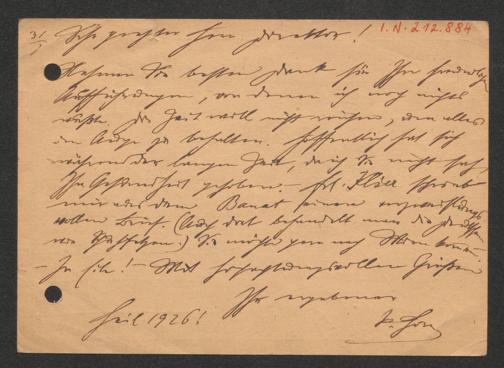 31/1 Sehr geehrter Herr Direktor! I.N. 212.884
Nehmen Sie besten Dank für Ihre freundlichen
Ausführungen, von denen ich noch nichts
wußte. Die Zeit will nicht reichen, um alles
im Auge zu behalten. Hoffentlich hat sich
während der langen Zeit, da ich Sie nicht sah,
Ihr Gesundheit gehoben. – Frl. schrieb
mir aus dem Banat einen
vollen Brief. (Auch dort behandelt man die Deutschen
wie .) Sie möchte gern nach Wien
– In Eile! – Mit hochachtungsvollen Grüßen
Ihr ergebener
Heil 1926!